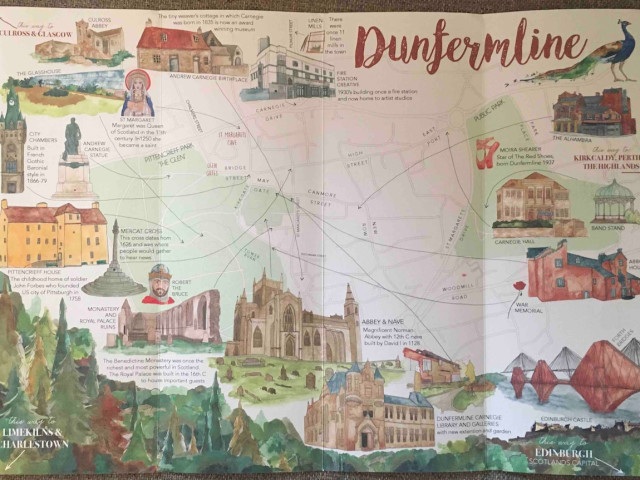 this way to
CULROSS & GLASGOW
CULROSS
ABBEY
The tiny weaver's cottage in which Carnegie
was born in 1835 is now an award
winning museum
LINEN
MILLS
There
were
once 11
linen
mills in
the town
Dunfermline
THE GLASSHOUSE
ANDREW CARNEGIE BIRTHPLACE
FIRE
STATION
CREATIVE
1930's building once a fire station
and now home to artist studios
ST MARGARET
Margaret was Queen
of Scotland in the 11th
century. In 1250 she
became a saint
CARNEGIE
DRIVE
PUBLIC PARK
EAST
PORT
THE ALHAMBRA
CITY
CHAMBERS
Built in
French
Gothic
Baronial
style in
1866-79
ANDREW
CARNEGIE
STATUE
PITTENCRIEFF PARK
'THE GLEN'
ST MARGARETS
CAVE
GLEN
GATES
BRIDGE
STREET
MAY
GATE
HIGH
STREET
CANMORE
STREET
NEW
ROW
ST MARGARETS
MOIRA SHEARER
Star of The Red Shoes,
born Dunfermline 1907
this way to
KIRKCALDY, PERTH
THE HIGHLANDS
CARNEGIE HALL
BAND STAND
MERCAT CROSS
This cross dates from
1626 and was where
people would gather
to hear news
PITTENCRIEFF HOUSE
The childhood home of soldier
John Forbes who founded
US city of Pittsburgh in
1758
ROBERT
THE
BRUCE
WOODMILL
ROAD
WAR
MEMORIAL
MONASTERY
AND
ROYAL PALACE
RUINS
ABBEY & NAVE
Magnificent Norman
Abbey with 12th C nave
built by David I in 1128
The Benedictine Monastery was once the
richest and most powerful in Scotland.
The Royal Palace was built in the 16th C
to house important guests.
DUNFERMLINE CARNEGIE
LIBRARY AND GALLERIES
with new extention and garden
EDINBURGH CASTLE
this way to
LIMEKILNS &
CHARLESTOWN
this way to
EDINBURGH
SCOTLANDS CAPITAL